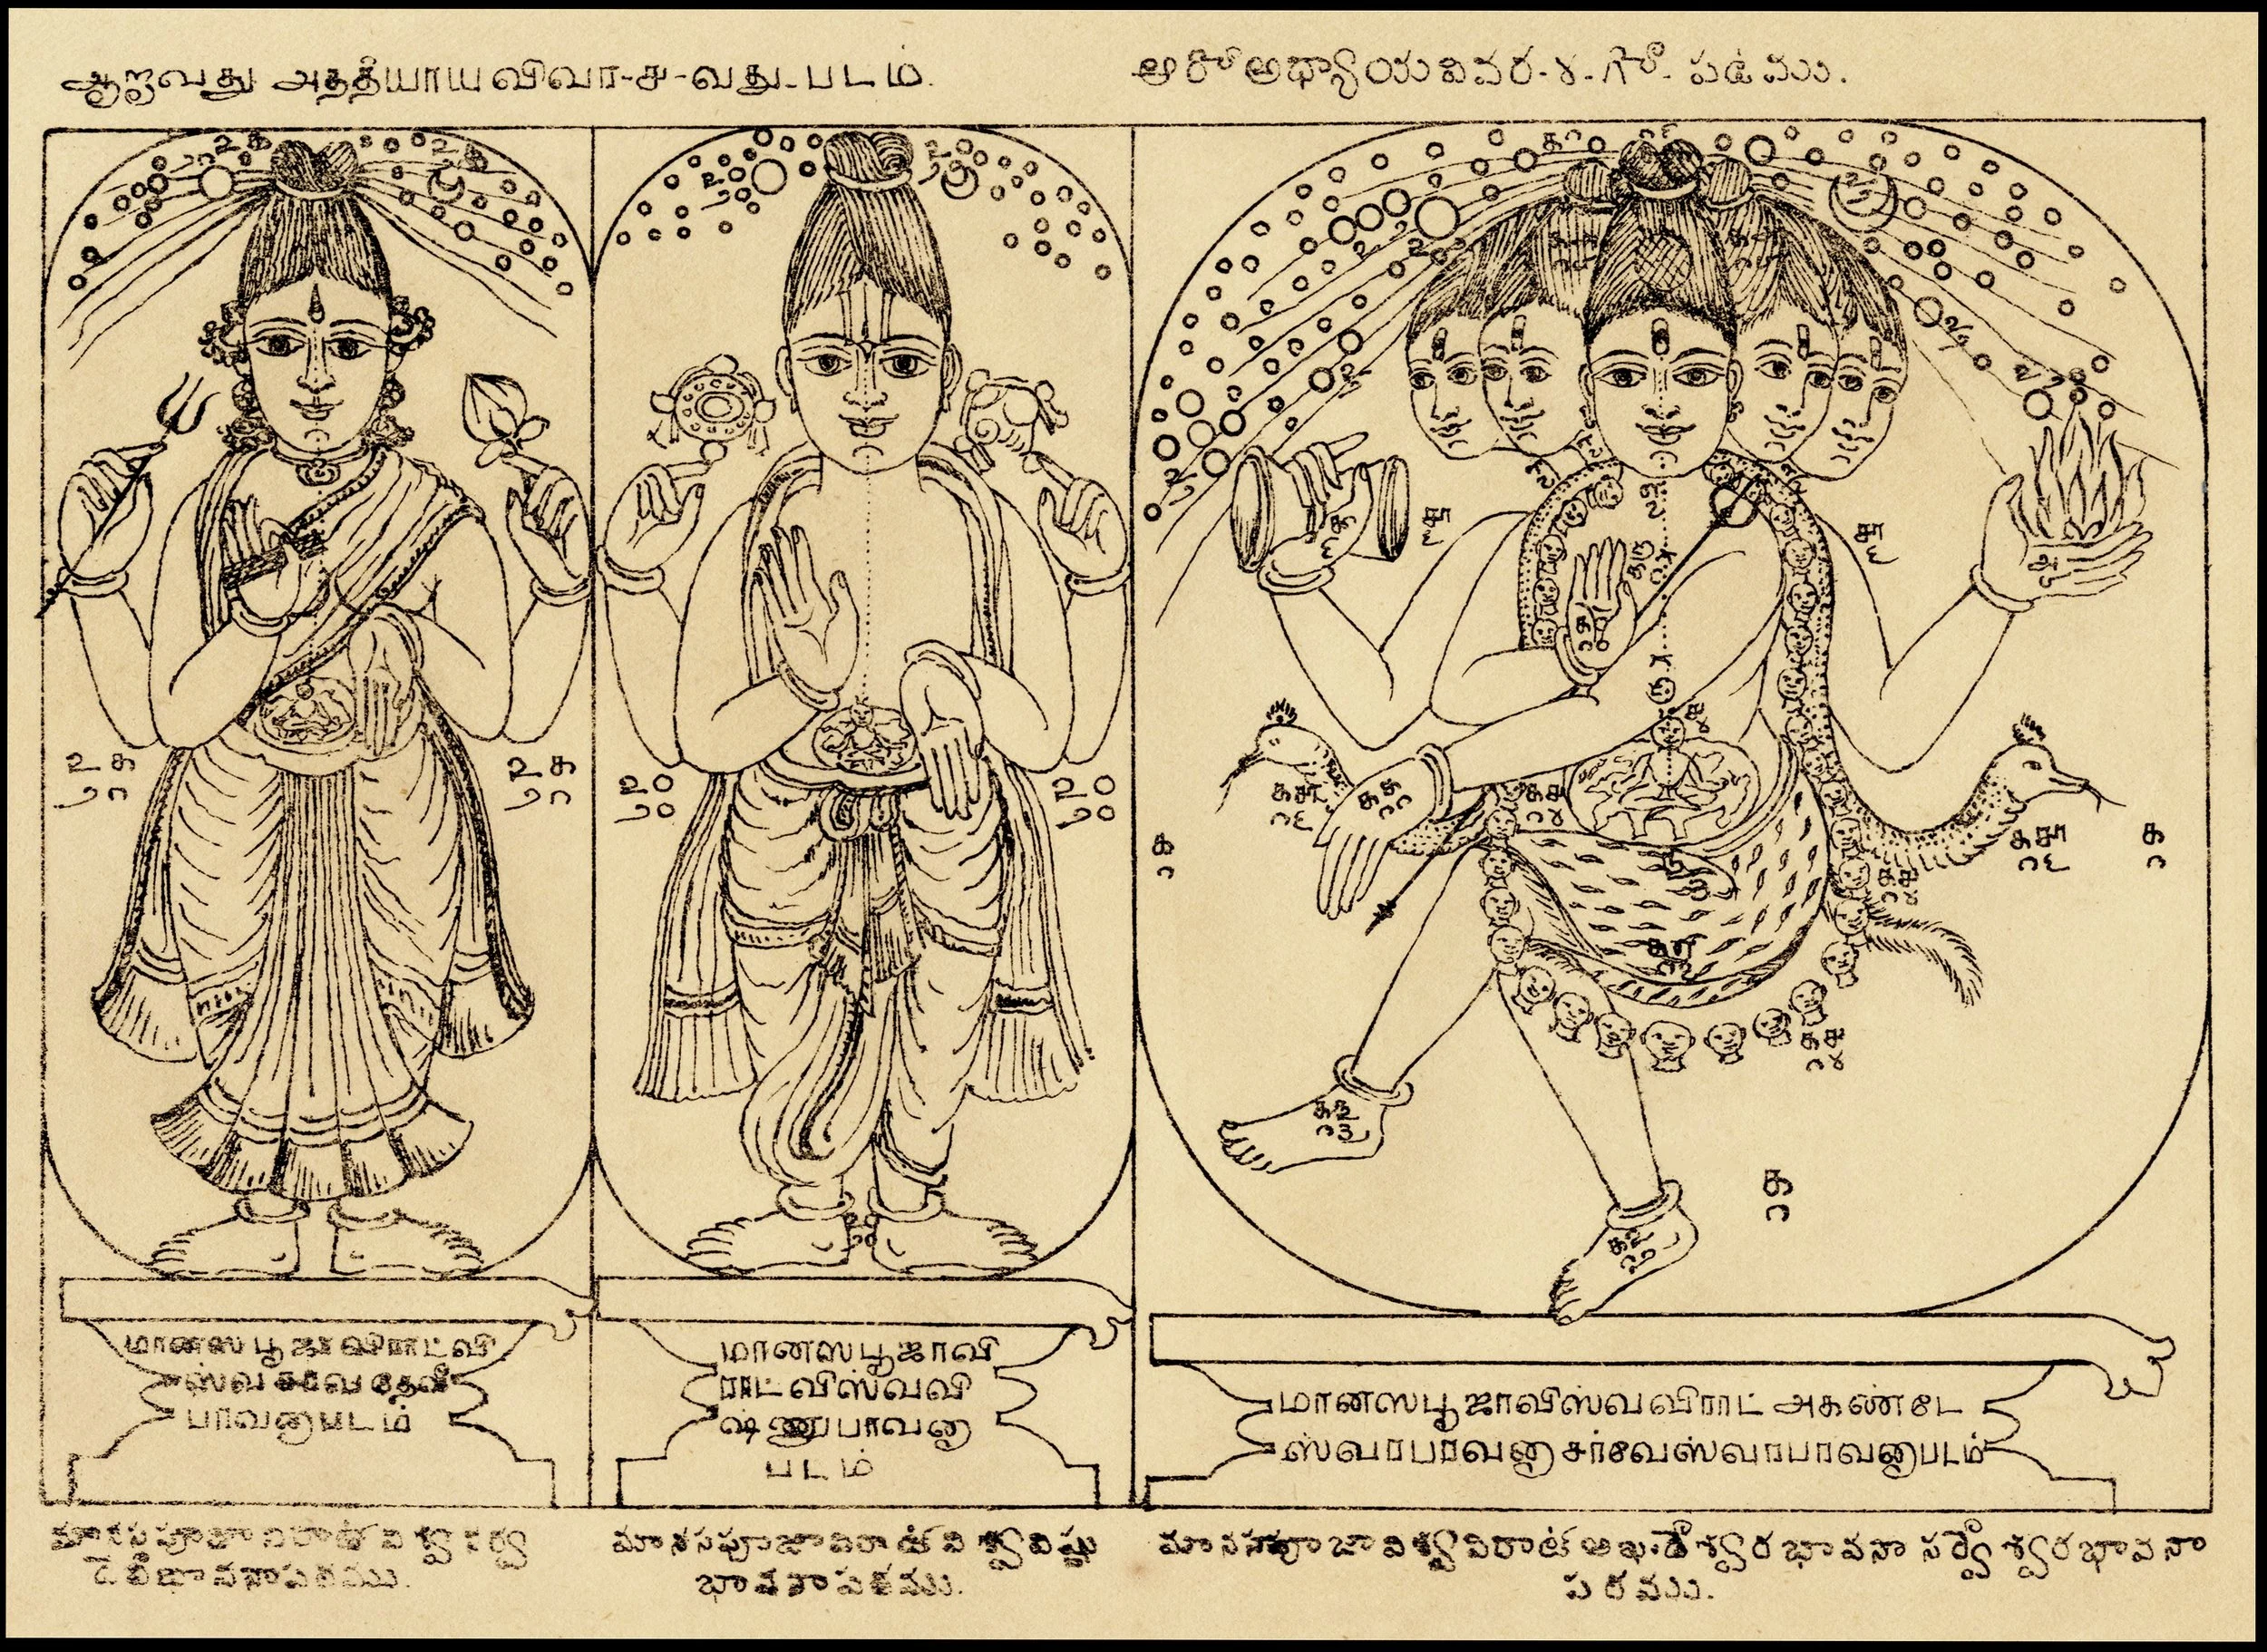 ஆறாவது அத்தியாய விவர-ச-வது-படம்.
ఆరో అధ్యాయ వివర-౪-గో-పటము.
உக
உக
உ௦
உ௦
க
க
க
மானஸ பூஜா விராட் வி
ஸ்வ சர்வ தேவீ
பாவனாபடம்
மானஸபூஜாவி
ராட் விஸ்வவி
ஷ்ணுபாவனா
படம்
மானஸபூஜாவிஸ்வவிராட் அகண்டே
ஸ்வரபாவனா சர்வேஸ்வரபாவனாபடம்
మానసపూజా విరాట్ విశ్వ సర్వ
దేవీభావనాపటము.
మానసపూజావిరాట్ విశ్వవిష్ణు
భావనాపటము.
మానసపూజావిశ్వవిరాట్ అఖండేశ్వరభావనా సర్వేశ్వరభావనా
పటము.